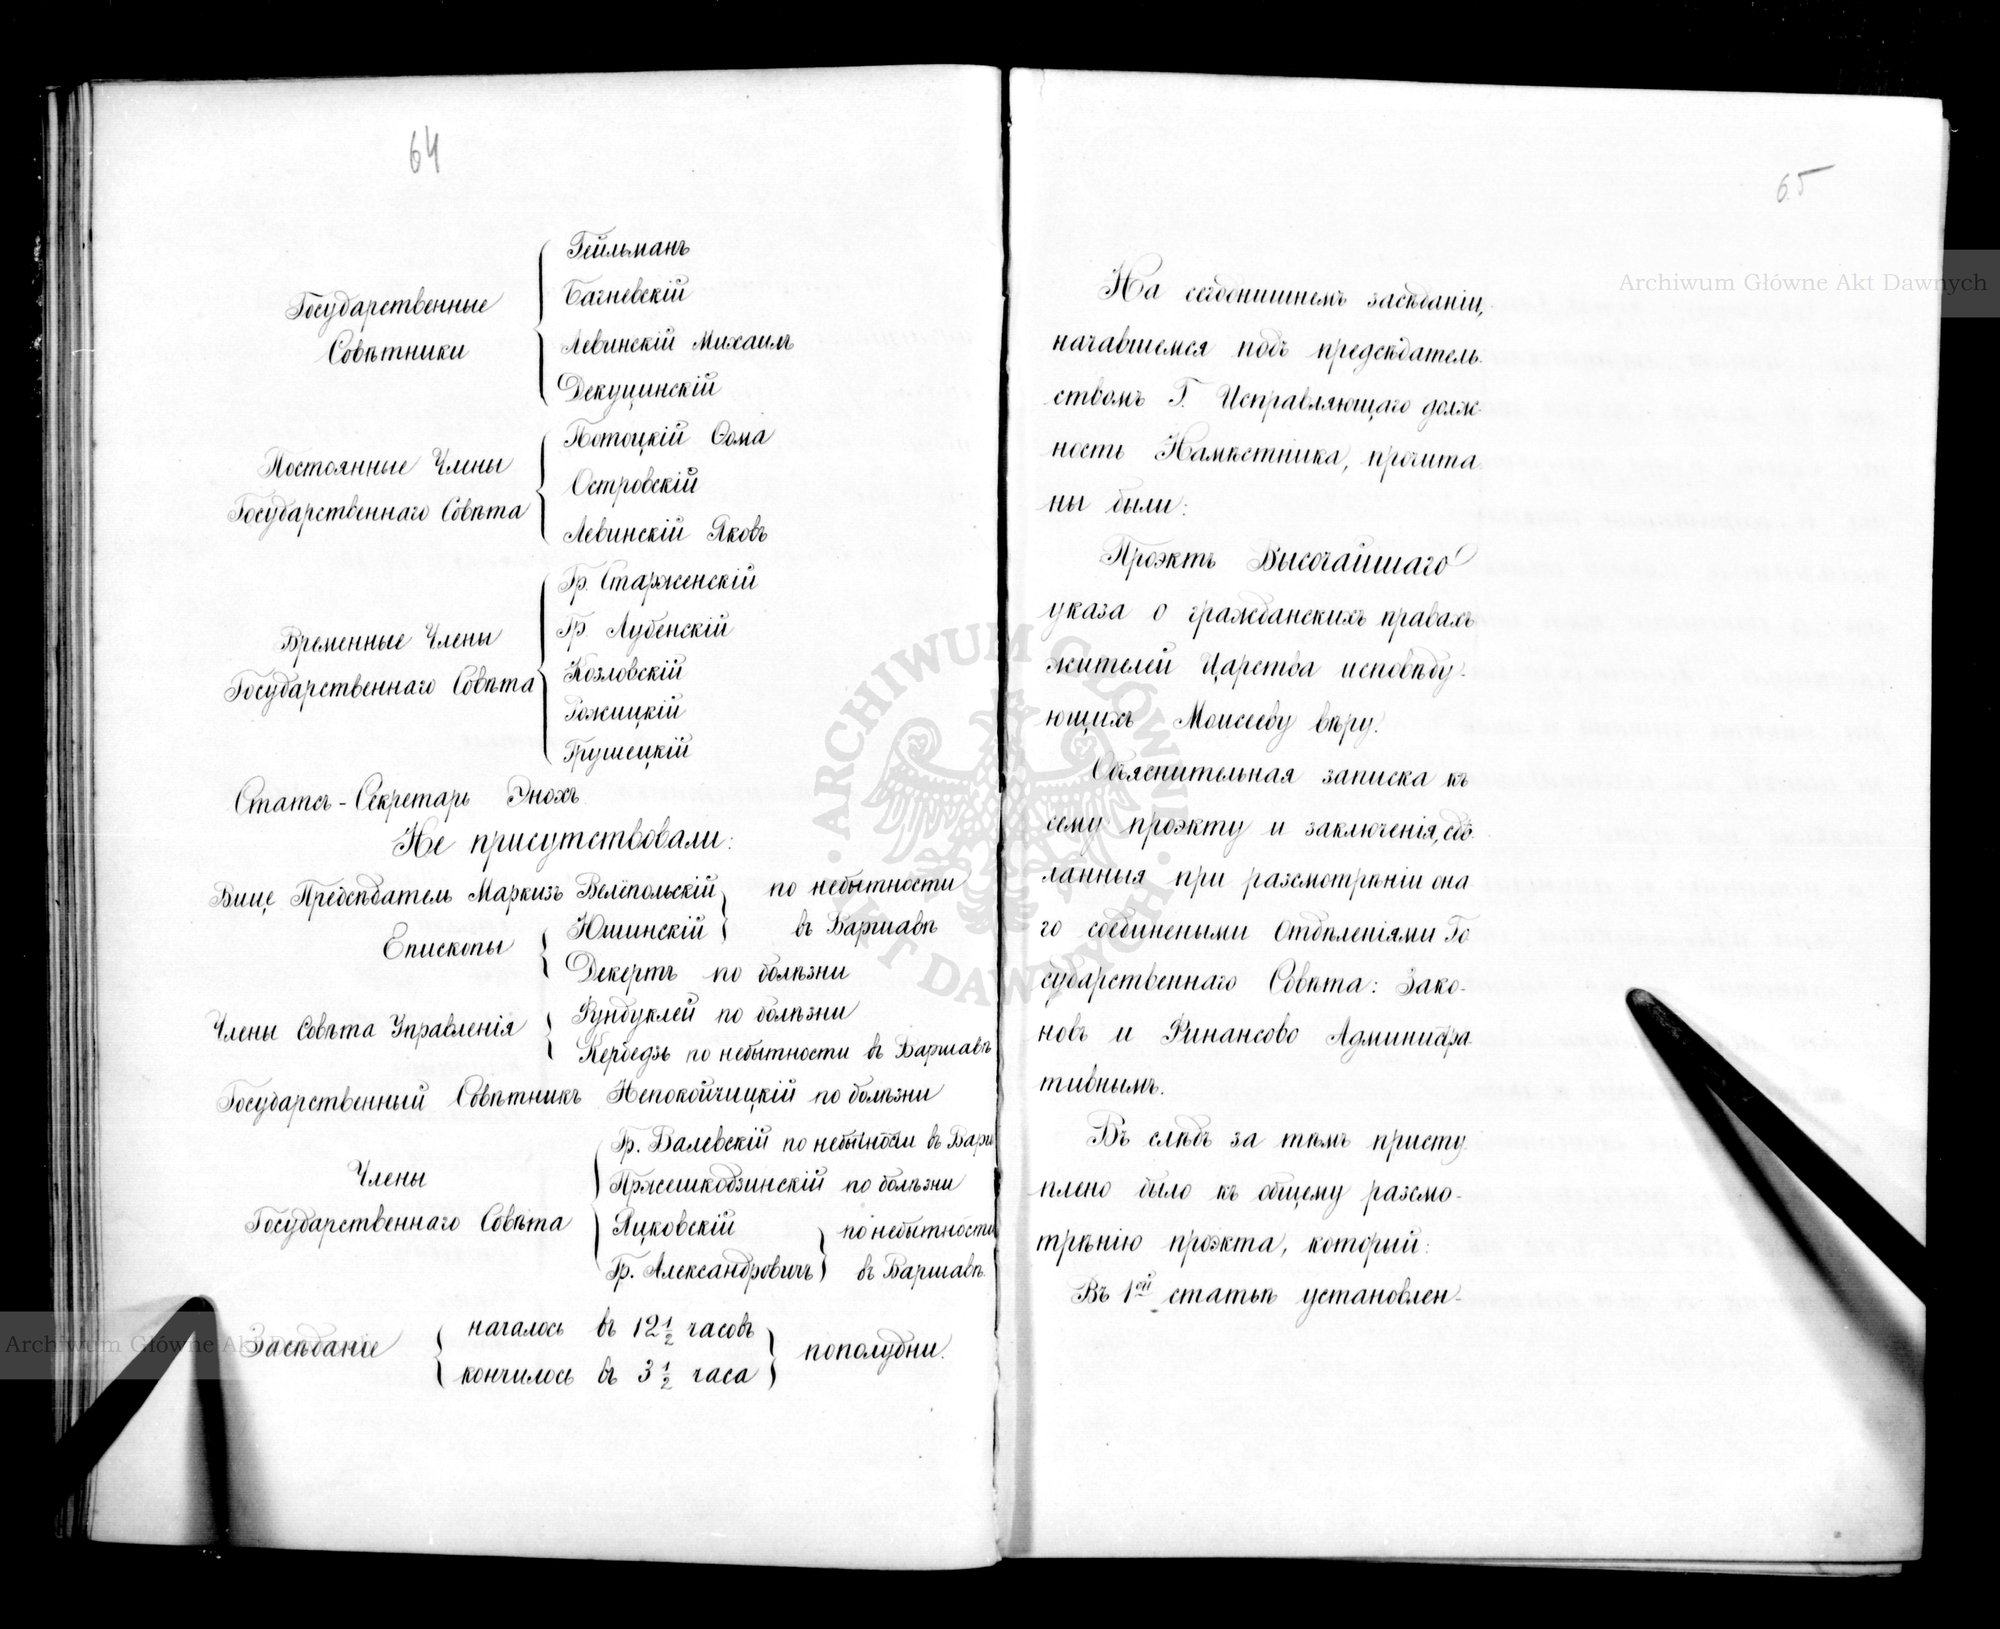 64
Государственные
Совѣтники
Гейльманъ
Багневскій
Левинскій Михаилъ
Декуцинскій
Постоянные Члены
Государственнаго Совѣта
Потоцкій Ѳома
Островскій
Левинскій Яковъ
Временные Члены
Государственнаго Совѣта
Гр. Старженскій
Гр. Лубенскій
Козловскій
Рожицкій
Грушецкій
Статсъ-Секретарь Энохъ
Не присутствовали:
Вице Предсѣдатель Маркизъ Велепольскій
Епископы
Юшинскій
по небытности
въ Варшавѣ
Декертъ по болѣзни
Члены Совѣта Управленія
Фундуклей по болѣзни
Кербедзъ по небытности въ Варшавѣ
Государственный Совѣтникъ Непокойчицкій по болѣзни
Члены
Государственнаго Совѣта
Гр. Валевскій по небытности въ Варш
Пржешкодзинскій по болѣзни
Яцковскій
Гр. Александровичъ
по небытности
въ Варшавѣ
Засѣданіе
началось въ 12 1/2 часовъ
кончилось въ 3 1/2 часа
пополудни.
65
На сегоднишнемъ засѣданіи,
начавшемся подъ предсѣдатель
ствомъ Г. Исправляющаго долж
ность Намѣстника, прочита
ны были:
Проэктъ Высочайшаго
указа о гражданскихъ правахъ
жителей Царства исповѣду-
ющихъ Моисееву вѣру.
Объяснительная записка къ
сему проэкту и заключенія, сдѣ
ланныя при разсмотрѣніи она
го соединеными Отдѣленіями Го
сударственнаго Совѣта: Зако-
новъ и Финансово Админиcтра
тивнымъ.
Въ слѣдъ за тѣмъ присту
плено было къ общему разсмо-
трѣнію проэкта, который:
Въ 1ой статьѣ установлен-
Archiwum Główne Akt Dawnych
Archiwum Główne Akt Dawnych
ARCHIWUM GŁÓWNE AKT DAWNYCH